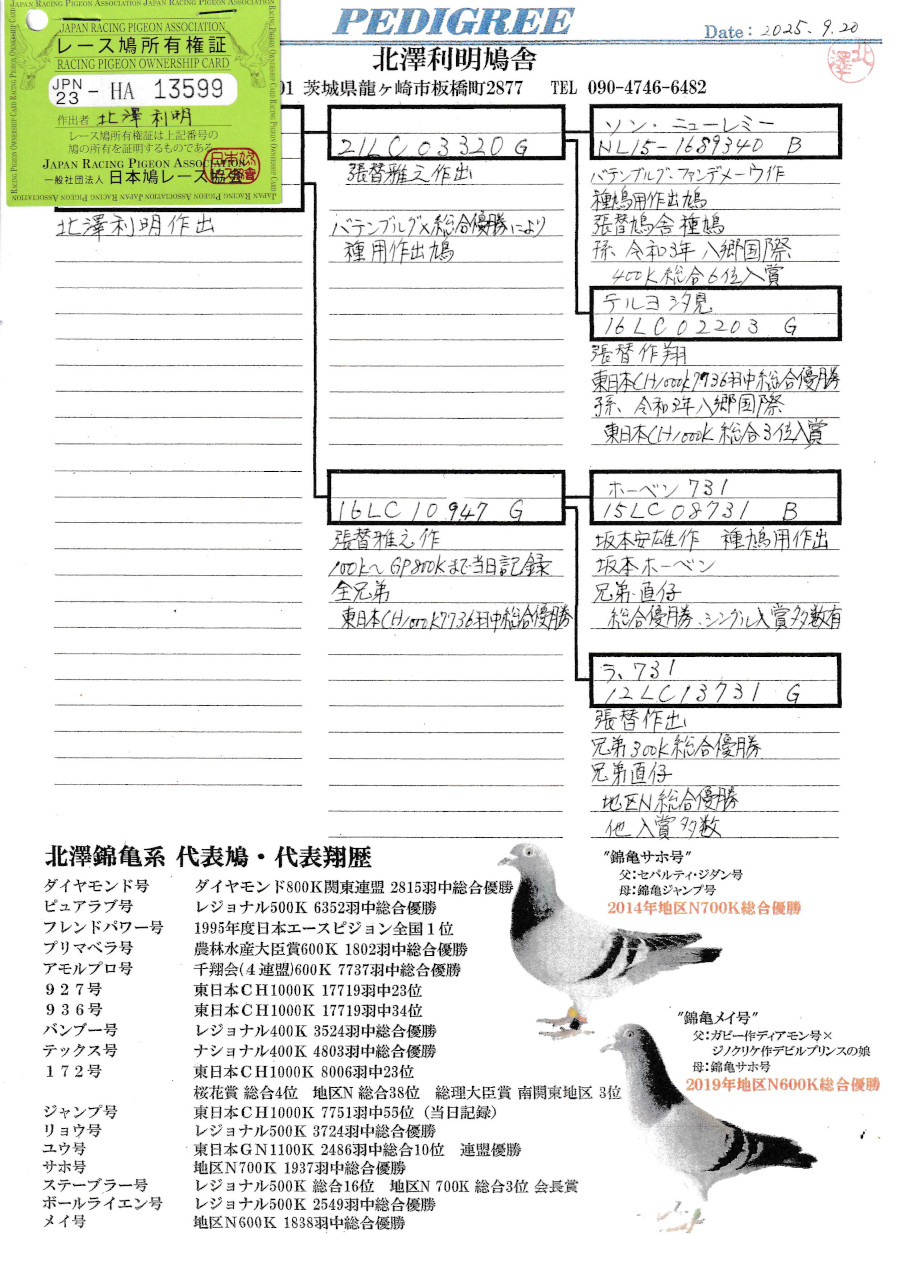 PEDIGREE
Date: 2025. 9. 20
北澤
北澤利明鳩舎
01 茨城県龍ヶ崎市板橋町2877 TEL 090-4746-6482
JAPAN RACING PIGEON ASSOCIATION
レース鳩所有権証
RACING PIGEON OWNERSHIP CARD
JPN 23 - HA 13599
作出者 北澤 利明
レース鳩所有権証は上記番号の
鳩の所有を証明するものである
JAPAN RACING PIGEON ASSOCIATION
一般社団法人 日本鳩レース協会
北澤利明作出
21LC 03320 G
張替雅之作出
バテンブルグ×総合優勝により
種用作出鳩
16LC 10947 G
張替雅之作
100K〜GP800Kまで当日記録
全兄弟
東日本CH1000K7736羽中総合優勝
ソン・ニューレミー
NL15-1689340 B
バテンブルグ・ファンデメーウ作
種鳩用作出鳩
張替鳩舎 種鳩
孫、令和3年 八郷国際
400K総合6位入賞
テルヨ 汐見
16LC02203 G
張替作翔
東日本CH1000K7736羽中総合優勝
孫、令和3年八郷国際
東日本CH1000K 総合3位入賞
ホーベン 731
15LC 08731 B
坂本安雄作 種鳩用作出
坂本ホーベン
兄弟・直仔
総合優勝、シングル入賞多数有
ラ、731
12LC13731 G
張替作出
兄弟300K総合優勝
兄弟直仔
地区N総合優勝
他 入賞多数
北澤錦亀系 代表鳩・代表翔歴
ダイヤモンド号 ダイヤモンド800K関東連盟 2815羽中総合優勝
ピュアラブ号 レジョナル500K 6352羽中総合優勝
フレンドパワー号 1995年度日本エースピジョン全国1位
プリマベラ号 農林水産大臣賞600K 1802羽中総合優勝
アモルプロ号 千翔会(4連盟)600K 7737羽中総合優勝
927号 東日本CH1000K 17719羽中23位
936号 東日本CH1000K 17719羽中34位
バンブー号 レジョナル400K 3524羽中総合優勝
テックス号 ナショナル400K 4803羽中総合優勝
172号 東日本CH1000K 8006羽中23位
桜花賞 総合4位 地区N 総合38位 総理大臣賞 南関東地区 3位
ジャンプ号 東日本CH1000K 7751羽中55位（当日記録）
リョウ号 レジョナル500K 3724羽中総合優勝
ユウ号 東日本GN1100K 2486羽中総合10位 連盟優勝
サホ号 地区N700K 1937羽中総合優勝
ステーブラー号 レジョナル500K 総合16位 地区N 700K 総合3位 会長賞
ボールライエン号 レジョナル500K 2549羽中総合優勝
メイ号 地区N600K 1838羽中総合優勝
"錦亀サホ号"
父：セパルティ・ジダン号
母：錦亀ジャンプ号
2014年地区N700K総合優勝
"錦亀メイ号"
父：ガビー作ディアモン号×
ジノクリケ作デビルプリンスの娘
母：錦亀サホ号
2019年地区N600K総合優勝